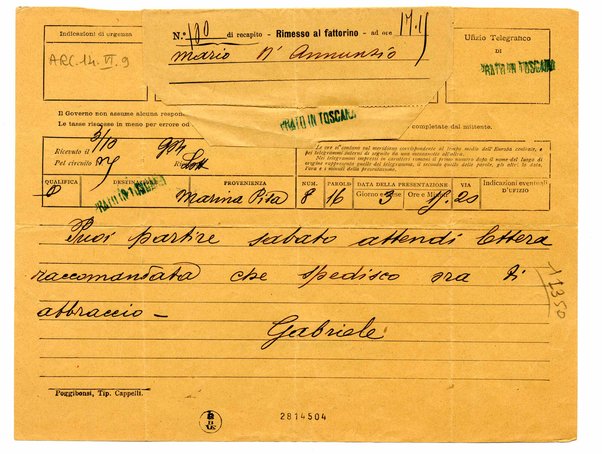 Indicazioni di urgenza
ARC.14.VI.9
N.º 100 di recapito - Rimesso al fattorino - ad ore 17.15
Mario D'Annunzio
Ufizio Telegrafico
DI
PRATO IN TOSCANA
PRATO IN TOSCANA
Il Governo non assume alcuna respon
Le tasse riscosse in meno per errore od
completate dal mittente.
Ricevuto il 3/10
Pel circuito
Le ore si contano sul meridiano corrispondente al tempo medio dell'Europa centrale, e
Nei telegrammi impressi in caratteri romani il primo numero dopo il nome del luogo di
origine rappresenta quello del telegramma, il secondo quello delle parole, gli altri la data,
l'ora e i minuti della presentazione.
QUALIFICA DESTINAZIONE PROVENIENZA NUM. PAROLE DATA DELLA PRESENTAZIONE VIA Indicazioni eventuali
Giorno e Mese Ore e Minuti D'UFIZIO
PRATO IN TOSCANA
Marina Pisa 8 16 3 15.20
Puoi partire sabato attendi lettera
raccomandata che spedisco ora ti
abbraccio -
Gabriele
11350
Poggibonsi, Tip. Cappelli.
2814504